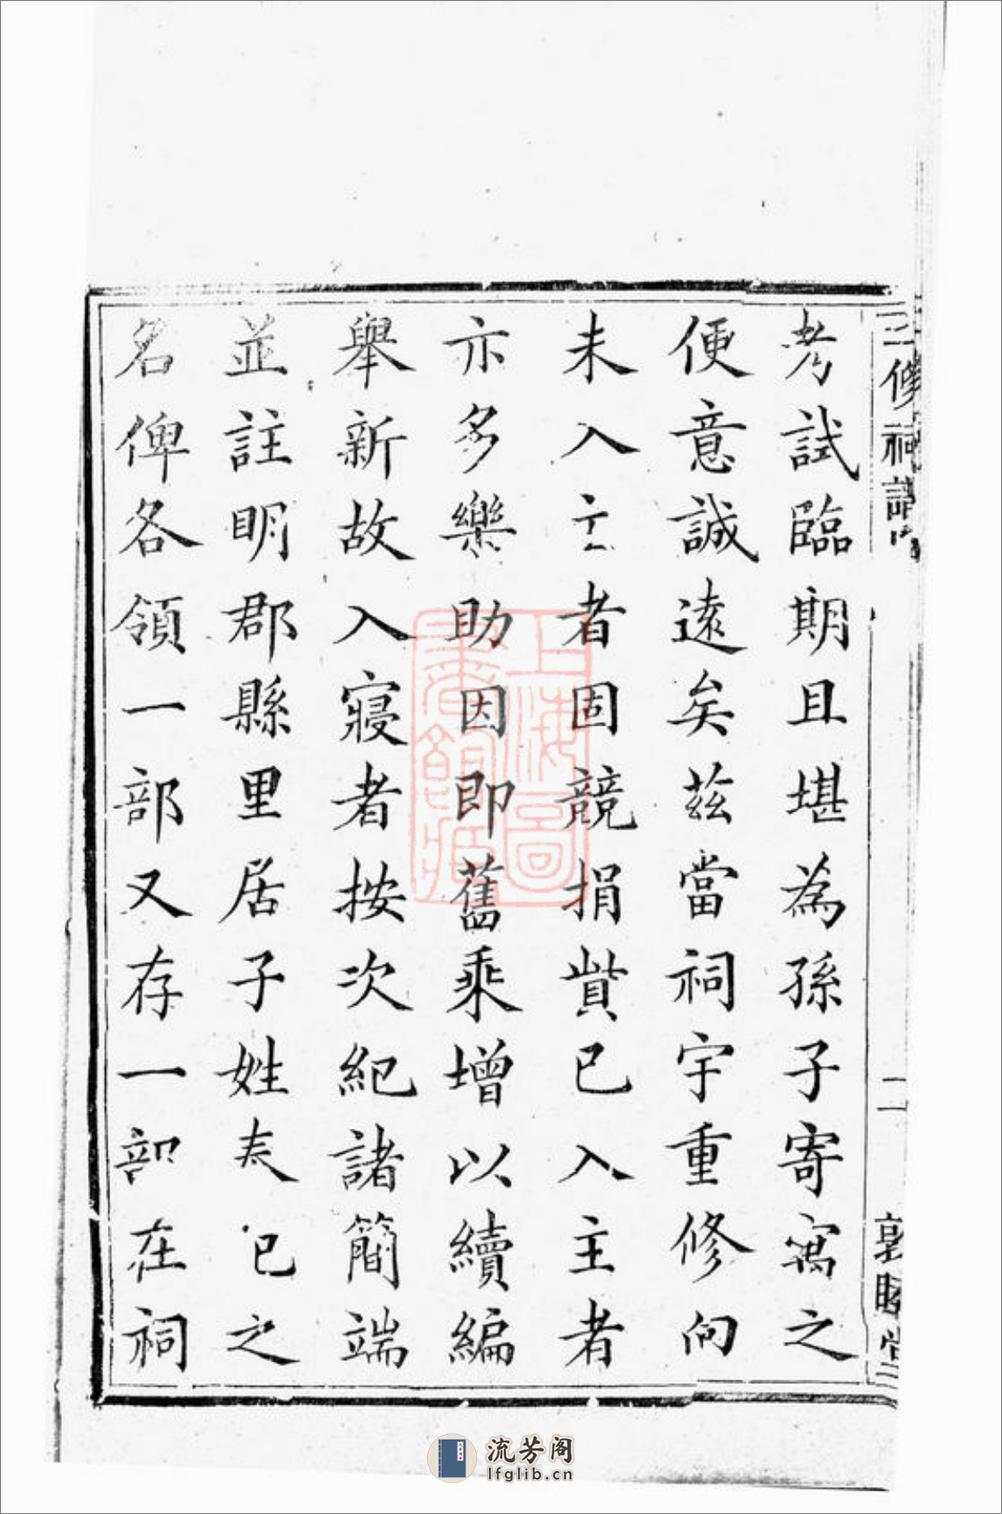 考試臨期且堪為孫子寄寓之
便意誠遠矣茲當祠宇重修向
未入主者固競捐貲已入主者
亦多樂助因即舊乘增以續編
舉新故入寢者按次紀諸簡端
並註明郡縣里居子姓表已之
名俾各領一部又存一部在祠
三修祠譜
二
敦睦堂
上海圖書館藏
流芳阁
lfglib.cn